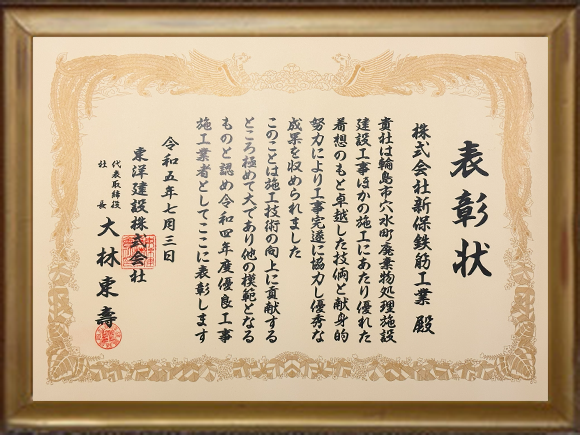 表彰状
株式会社新保鉄筋工業 殿
貴社は輪島市穴水町廃棄物処理施設
建設工事ほかの施工にあたり優れた
着想のもと卓越した技術と献身的
努力により工事完遂に協力し優秀な
成果を収められました
このことは施工技術の向上に貢献する
ところ極めて大であり他の模範となる
ものと認め令和四年度優良工事
施工業者としてここに表彰します
令和五年七月三日
東洋建設株式会社
代表取締役
社長 大林東壽